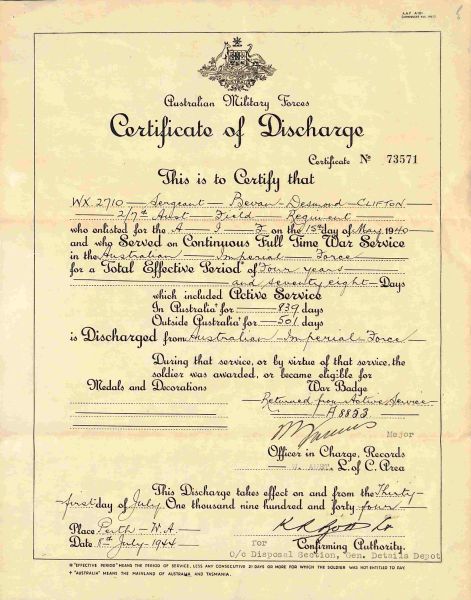 Australian Military Forces
Certificate of Discharge
Certificate No 73571
This is to Certify that
WX 2710 - Sergeant - Bevan - Desmond - CLIFTON -
2/7th Aust Field Regiment
who enlisted for the A I F on the 15th day of May 1940
and who Served on Continuous Full Time War Service
in the Australian Imperial Force
for a Total Effective Period* of Four years
and seventy eight - Days
which included Active Service
In Australia† for 839 days
Outside Australia† for 501 days
is Discharged from Australian - Imperial Force
During that service, or by virtue of that service, the
soldier was awarded, or became eligible for
Medals and Decorations War Badge
Returned from Active Service
A8853
Major
Officer in Charge, Records
L. of C. Area
This Discharge takes effect on and from the Thirty-
first day of July One thousand nine hundred and forty four
Place Perth - W.A. -
Date 8th July 1944 for Confirming Authority.
O/c Disposal Section, Gen. Details Depot
* "EFFECTIVE PERIOD" MEANS THE PERIOD OF SERVICE, LESS ANY CONSECUTIVE 21 DAYS OR MORE FOR WHICH THE SOLDIER WAS NOT ENTITLED TO PAY.
† "AUSTRALIA" MEANS THE MAINLAND OF AUSTRALIA AND TASMANIA.